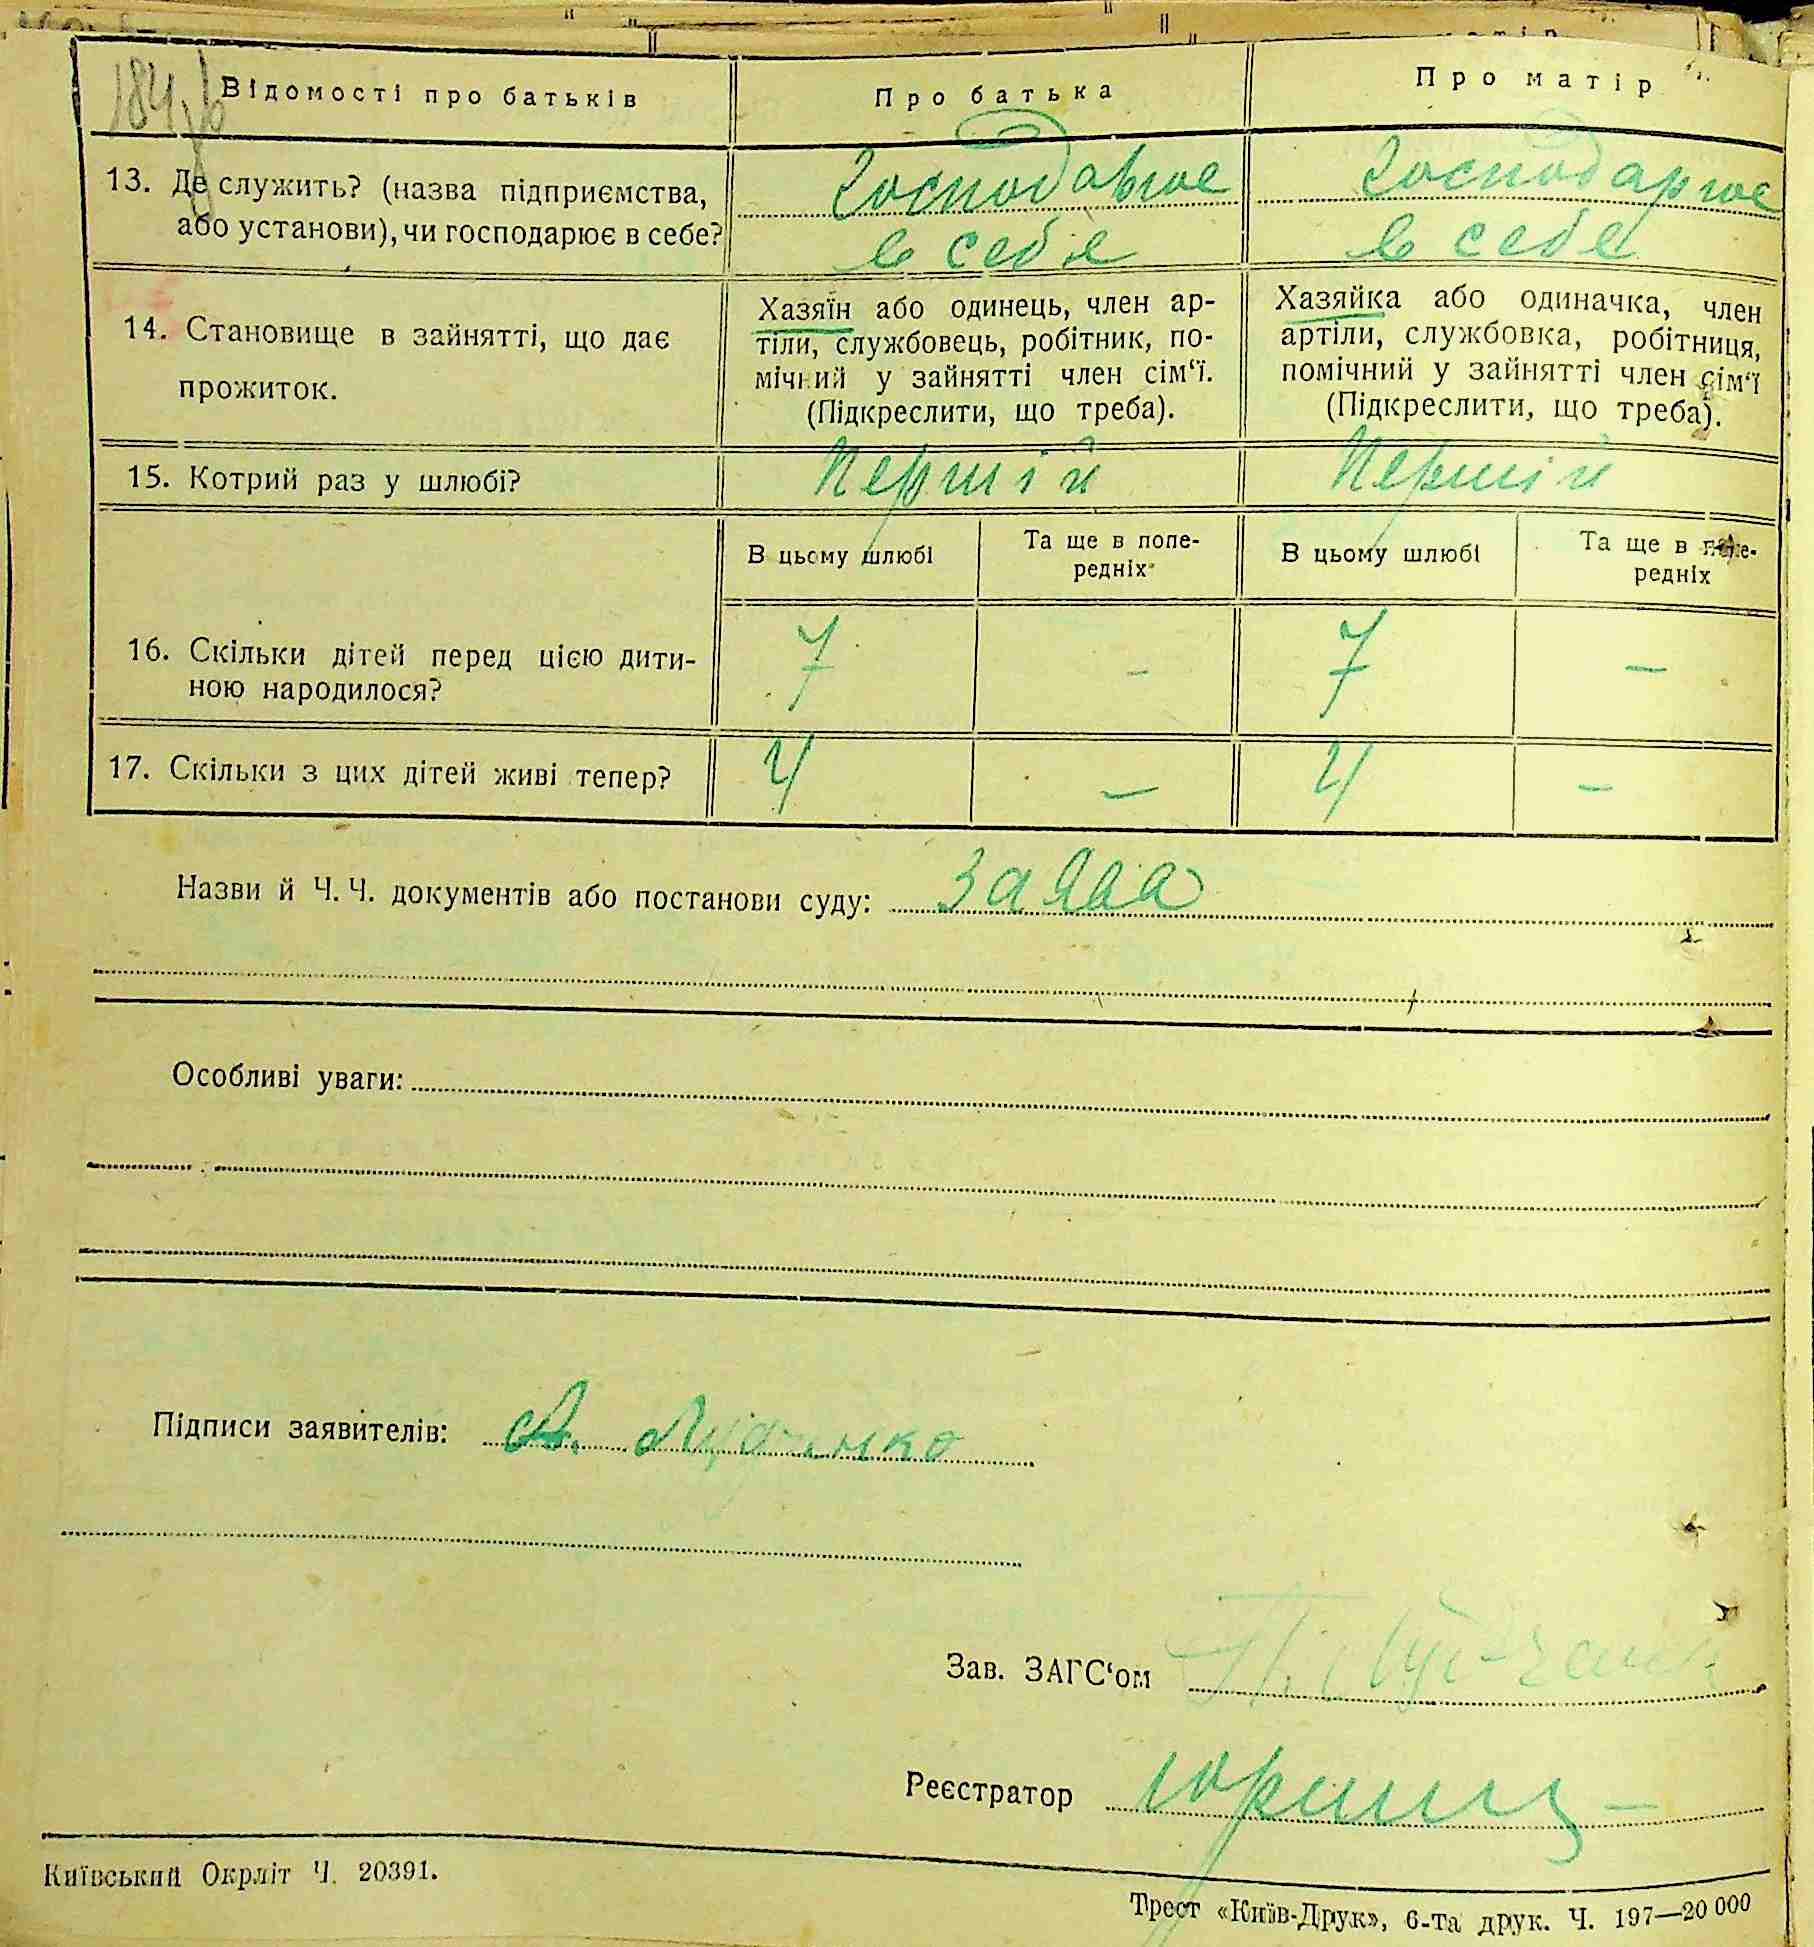 184
Відомості про батьків
Про батька
Про матір
13. Де служить? (назва підприємства,
або установи), чи господарює в себе?
Господарює
в себе
Господарює
в себе
14. Становище в зайнятті, що дає
прожиток.
Хазяїн або одинець, член ар-
тіли, службовець, робітник, по-
мічний у зайнятті член сім‘ї.
(Підкреслити, що треба).
Хазяйка або одиначка, член
артіли, службовка, робітниця,
помічний у зайнятті член сім‘ї
(Підкреслити, що треба).
15. Котрий раз у шлюбі?
Перший
Перший
В цьому шлюбі
Та ще в попе-
редніх
В цьому шлюбі
Та ще в попе-
редніх
16. Скільки дітей перед цією дити-
ною народилося?
7
-
7
-
17. Скільки з цих дітей живі тепер?
4
-
4
-
Назви й Ч. Ч. документів або постанови суду: заява
Особливі уваги:
Підписи заявителів:
Зав. ЗАГС‘ом
Реєстратор
Київський Окрліт Ч. 20391.
Трест «Київ-Друк», 6-та друк. Ч. 197—20 000